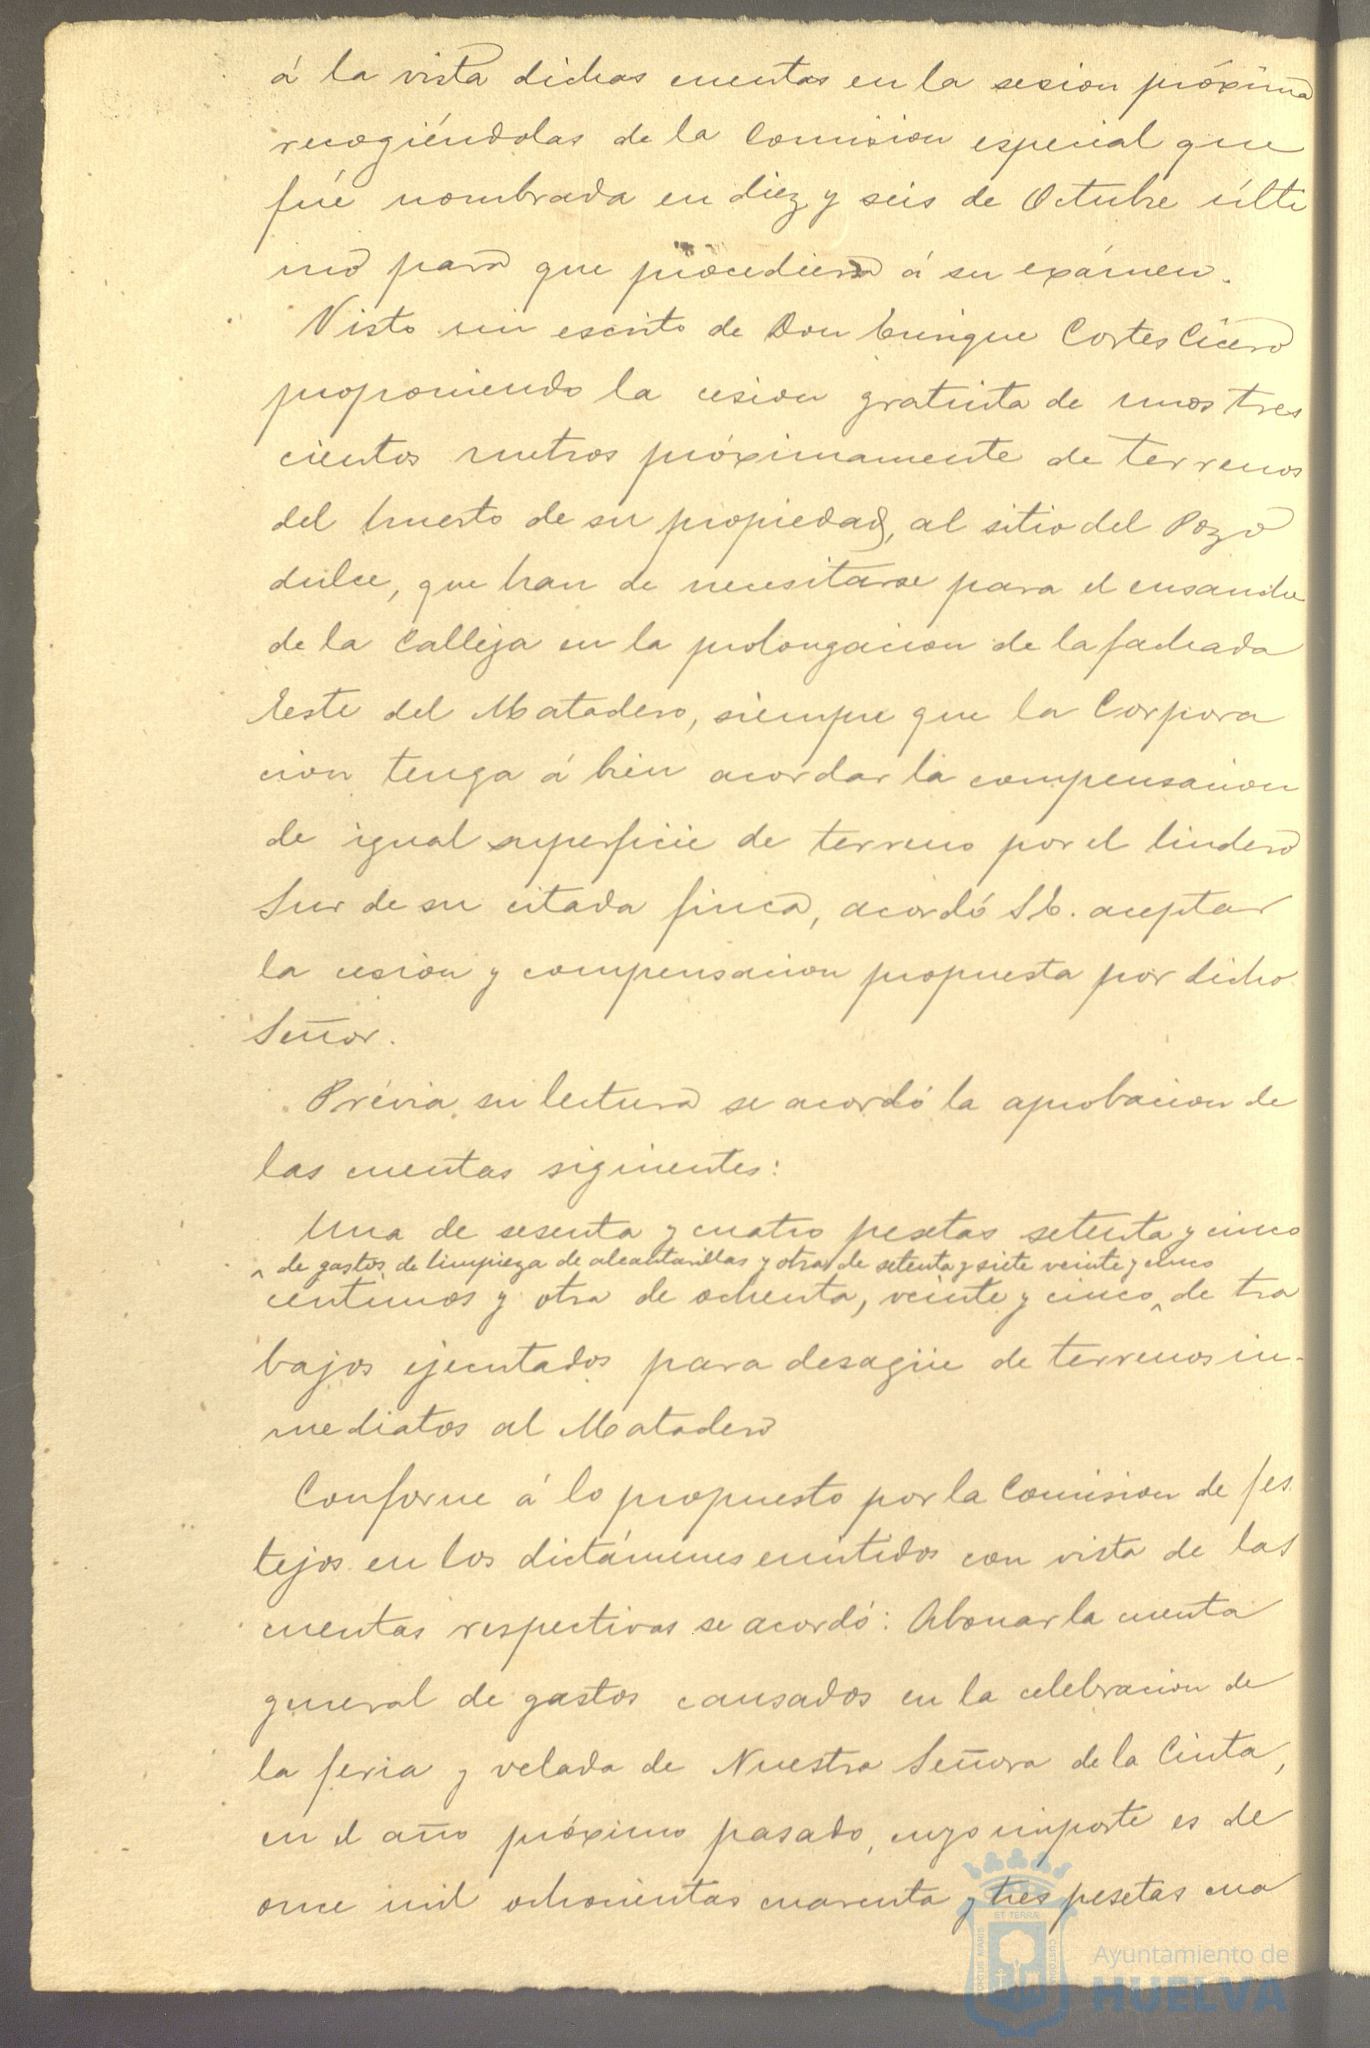 á la vista dichas cuentas en la sesion próxima
recogiéndolas de la Comision especial que
fué nombrada en diez y seis de Octubre últi
mo para que procediera á su exámen.
Visto un escrito de Don Enrique Cortes Cicero
proponiendo la cesion gratuita de unos tres
cientos metros próximamente de terrenos
del huerto de su propiedad, al sitio del Pozo
dulce, que han de necesitarse para el ensanche
de la Calleja en la prolongacion de la fachada
Este del Matadero, siempre que la Corpora
cion tenga á bien acordar la compensacion
de igual superficie de terreno por el lindero
Sur de su citada finca, acordó S.E. aceptar
la cesion y compensacion propuesta por dicho
Señor.
Prévia su lectura se acordó la aprobacion de
las cuentas siguientes:
Una de sesenta y cuatro pesetas setenta y cinco
^ de gastos de limpieza de alcantarillas y otra de setenta y siete veinte y cinco
centimos y otra de ochenta, veinte y cinco ^ de tra
bajos ejecutados para desagüe de terrenos in-
mediatos al Matadero
Conforme á lo propuesto por la Comision de fes
tejos en los dictámenes emitidos con vista de las
cuentas respectivas se acordó: Abonar la cuenta
general de gastos causados en la celebracion de
la feria y velada de Nuestra Señora de la Cinta,
en el año próximo pasado, cuyo importe es de
once mil ochocientas cuarenta y tres pesetas cua
Ayuntamiento de
HUELVA